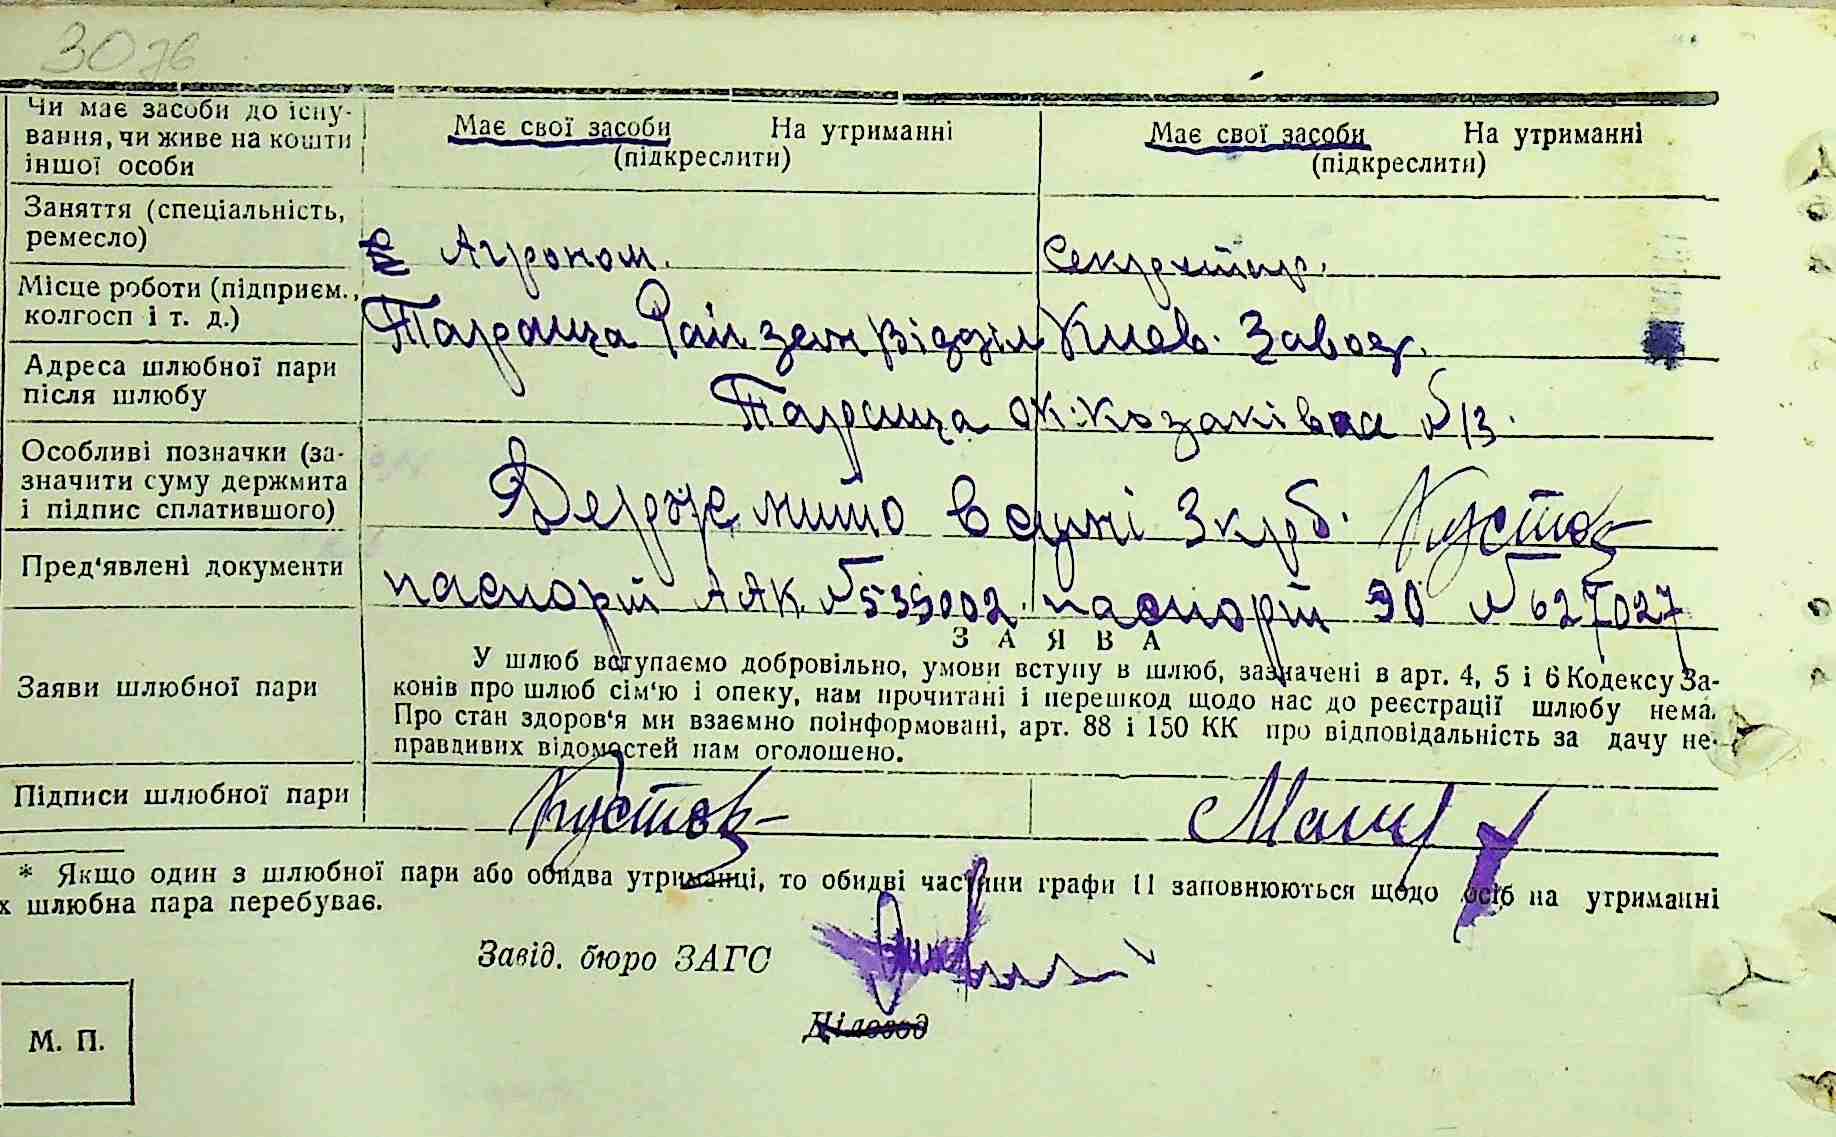 30 зв
Чи має засоби до існу-
вання, чи живе на кошти
іншої особи
Має свої засоби На утриманні
(підкреслити)
Має свої засоби На утриманні
(підкреслити)
Заняття (спеціальність,
ремесло)
Агроном.
Секретар.
Місце роботи (підприєм.,
колгосп і т. д.)
Тараща Рай зем відділ
Киев. Завод.
Адреса шлюбної пари
після шлюбу
Тараща №13.
Особливі позначки (за-
значити суму держмита
і підпис сплатившого)
Держ. мито в сумі 3 крб.
Пред'явлені документи
паспорт ААК. №539002.
паспорт ЭО №627027
ЗАЯВА
Заяви шлюбної пари
У шлюб вступаємо добровільно, умови вступу в шлюб, зазначені в арт. 4, 5 і 6 Кодексу За-
конів про шлюб сім'ю і опеку, нам прочитані і перешкод щодо нас до реєстрації шлюбу нема.
Про стан здоров'я ми взаємно поінформовані, арт. 88 і 150 КК про відповідальність за дачу не-
правдивих відомостей нам оголошено.
Підписи шлюбної пари
* Якщо один з шлюбної пари або обидва утриманці, то обидві частини графи 11 заповнюються щодо осіб на утриманні
х шлюбна пара перебуває.
Завід. бюро ЗАГС
Діловод
М. П.